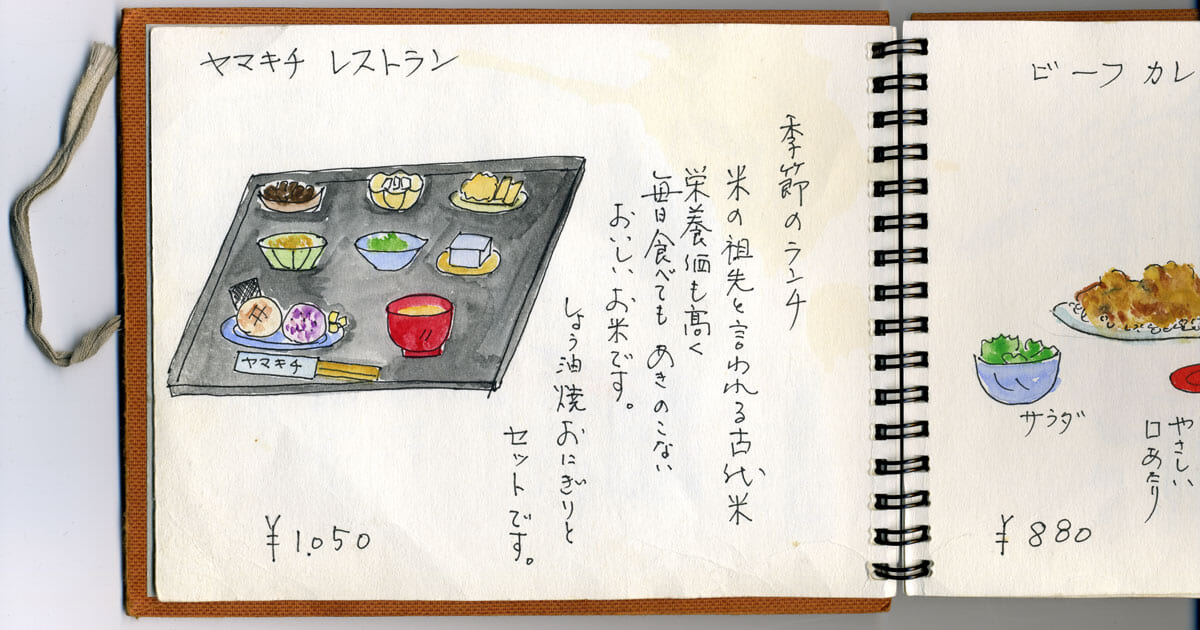 ヤマキチ レストラン
季節のランチ
米の祖先と言われる古代米
栄養価も高く
毎日食べても あきのこない
おいしいお米です。
しょう油焼おにぎりと
セットです。
ヤマキチ
¥1.050
ビーフ カレ
サラダ
やさしい
口あたり
¥880